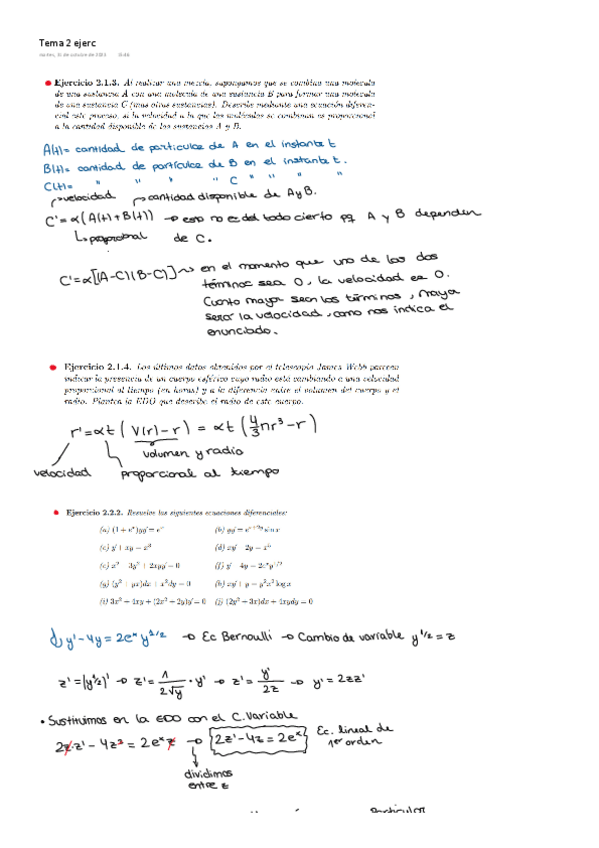 Tema 2 ejerc
martes, 31 de octubre de 2023
Ejercicio 2.1.3. Al realizar una mezcla, supongamos que se combina una molécula
de una sustancia A con una molécula de una sustancia B para formar una molécula
de una sustancia C (mas otras sustancias). Describe mediante una ecuación diferen-
cial este proceso, si la velocidad a la que las moléculas se combinan es proporcional
a la cantidad disponible de las sustancias A y B.
A(t)= cantidad de particulas de A en el instante t
B(t)= cantidad de partículas de B en el instante t.
C(t)= " " " " C " " " "
velocidad cantidad disponible de A y B.
C'=α(A(t)+B(t)) → esto no es del todo cierto pq A y B dependen
proporcional de C.
C'=α[(A-C)(B-C)] → en el momento que uno de los dos
términos sea 0, la velocidad es 0.
Cuanto mayor sean los términos, mayor
será la velocidad, como nos indica el
enunciado.
Ejercicio 2.1.4. Los últimos datos obtenidos por el telescopio James Webb parecen
indicar la presencia de un cuerpo esférico cuyo radio está cambiando a una velocidad
proporcional al tiempo (en horas) y a la diferencia entre el volumen del cuerpo y el
radio. Plantea la EDO que describe el radio de este cuerpo.
r'=αt (V(r)-r) = αt (4/3 πr³-r)
volumen y radio
velocidad proporcional al tiempo
Ejercicio 2.2.2. Resuelve las siguientes ecuaciones diferenciales:
(a) (1 + eˣ)yy' = eˣ (b)
(c) y' + xy = x³ (d)
(e) x² − 3y² + 2xyy' = 0 (f) y' − 4y = 2eˣy^{1/2}
(g) (y² + yx)dx + x²dy = 0 (h) xy' + y = y²x² log x
(i) 3x² + 4xy + (2x² + 2y)y' = 0 (j) (2y² + 3x)dx + 4xydy = 0
y'-4y = 2eˣ y^{1/2} → Ec Bernoulli → Cambio de variable y^{1/2} = z
z' = (y^{1/2})' → z' = 1/(2√y) · y' → z' = y'/2z → y' = 2zz'
• Sustituimos en la EDO con el C. Variable
2z·z' - 4z² = 2eˣz → 2z'-4z = 2eˣ Ec. lineal de
1er orden
dividimos
entre z